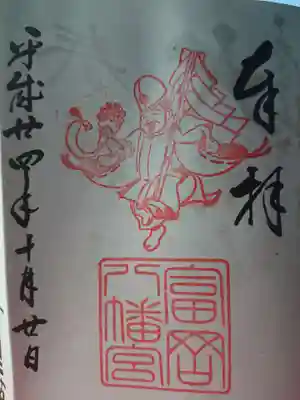 奉拝
富岡
八幡宮
平成廿四年十月廿日